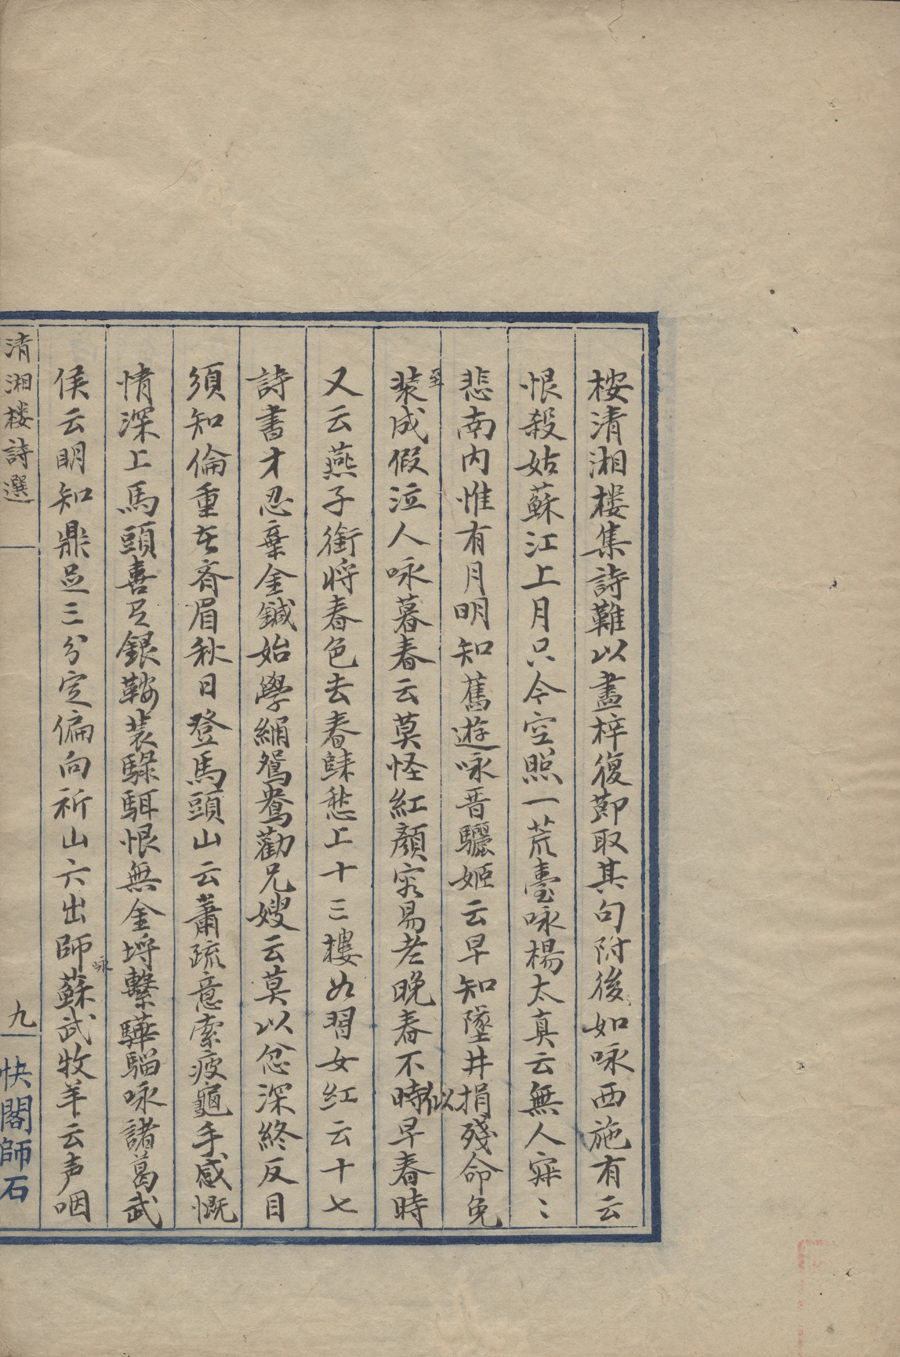 桉清湘楼集詩難以盡梓復節取其句附後如咏西施有云
恨殺姑蘇江上月只今空照一荒臺咏楊太真云無人寐〻
悲南内惟有月明知舊遊咏晋驪姬云早知墜井捐殘命免
至
似
裝成假泣人咏暮春云莫怪紅顏容易老晚春不時早春時
又云燕子銜将春色去春歸愁上十三樓如習女红云十七
詩書才忍棄金鍼始學綉鴛鴦勸兄嫂云莫以忿深終反目
須知倫重在齊眉秋日登馬頭山云蕭疏意索疲龜手感慨
情深上馬頭喜已銀鞍裝騄駬恨無金埒繫驊騮咏諸葛武
侯云明知鼎足三分定偏向祈山六出師蘇武牧羊云声咽
咏
清湘楼詩選
九
快閣師石